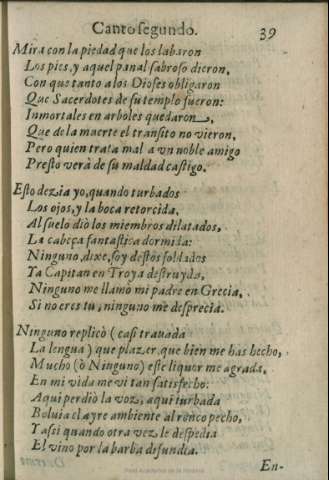 Canto segundo. 39
Mira con la piedad que los labaron
Los pies, y aquel panal sabroso dieron,
Con que tanto a los Dioses obligaron
Que Sacerdotes de su templo fueron:
Inmortales en arboles quedaron,
Que de la muerte el transito no vieron,
Pero quien trata mal a vn noble amigo
Presto verà de su maldad castigo.
Esto dezia yo, quando turbados
Los ojos, y la boca retorcida,
Al suelo diò los miembros dilatados,
La cabeça fantastica dormida:
Ninguno, dixe, soy destos soldados
Ya Capitan en Troya destruyda,
Ninguno me llamò mi padre en Grecia,
Si no eres tu, ninguno me desprecia.
Ninguno replicò (casi trauada
La lengua) que plazer, que bien me has hecho,
Mucho (ò Ninguno) este liquor me agrada,
En mi vida me vi tan satisfecho:
Aqui perdiò la voz, aqui turbada
Boluia el ayre ambiente al ronco pecho,
Y assi quando otra vez le despedia
El vino por la barba difundia.
En-
Real Academia de la Historia